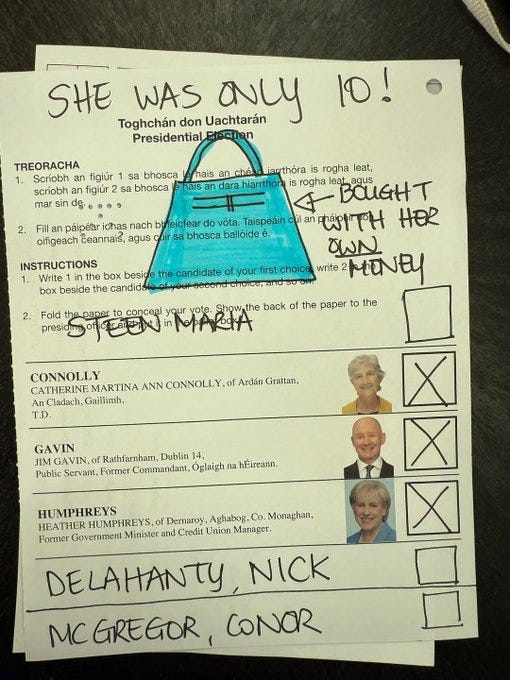 SHE WAS ONLY 10!
Toghchán don Uachtarán
Presidential Election
TREORACHA
1. Scríobh an figiúr 1 sa bhosca le hais an chéad iarrthóra is rogha leat,
scríobh an figiúr 2 sa bhosca le hais an dara hiarrthóra is rogha leat, agus
mar sin de.
2. Fill an páipéar ionas nach bhfeicfear do vóta. Taispeáin cúl an pháipéir
oifigeach ceannais, agus cuir sa bhosca ballóide é.
BOUGHT
WITH HER
OWN
MONEY
INSTRUCTIONS
1. Write 1 in the box beside the candidate of your first choice, write 2
box beside the candidate of your second choice, and so on.
2. Fold the paper to conceal your vote. Show the back of the paper to the
presiding officer and put it in the box
STEEN MARIA
CONNOLLY
CATHERINE MARTINA ANN CONNOLLY, of Ardán Grattan,
An Cladach, Gaillimh,
T.D.
X
GAVIN
JIM GAVIN, of Rathfarnham, Dublin 14,
Public Servant, Former Commandant, Óglaigh na hÉireann.
X
HUMPHREYS
HEATHER HUMPHREYS, of Dernaroy, Aghabog, Co. Monaghan,
Former Government Minister and Credit Union Manager.
X
DELAHANTY, NICK
MCGREGOR, CONOR